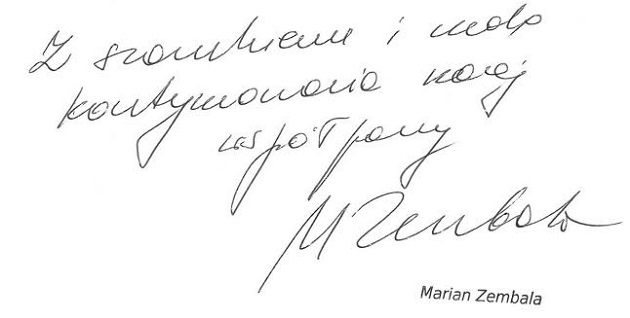 Z szacunkiem i wolą
kontynuowania naszej
współpracy
M Zembala
Marian Zembala